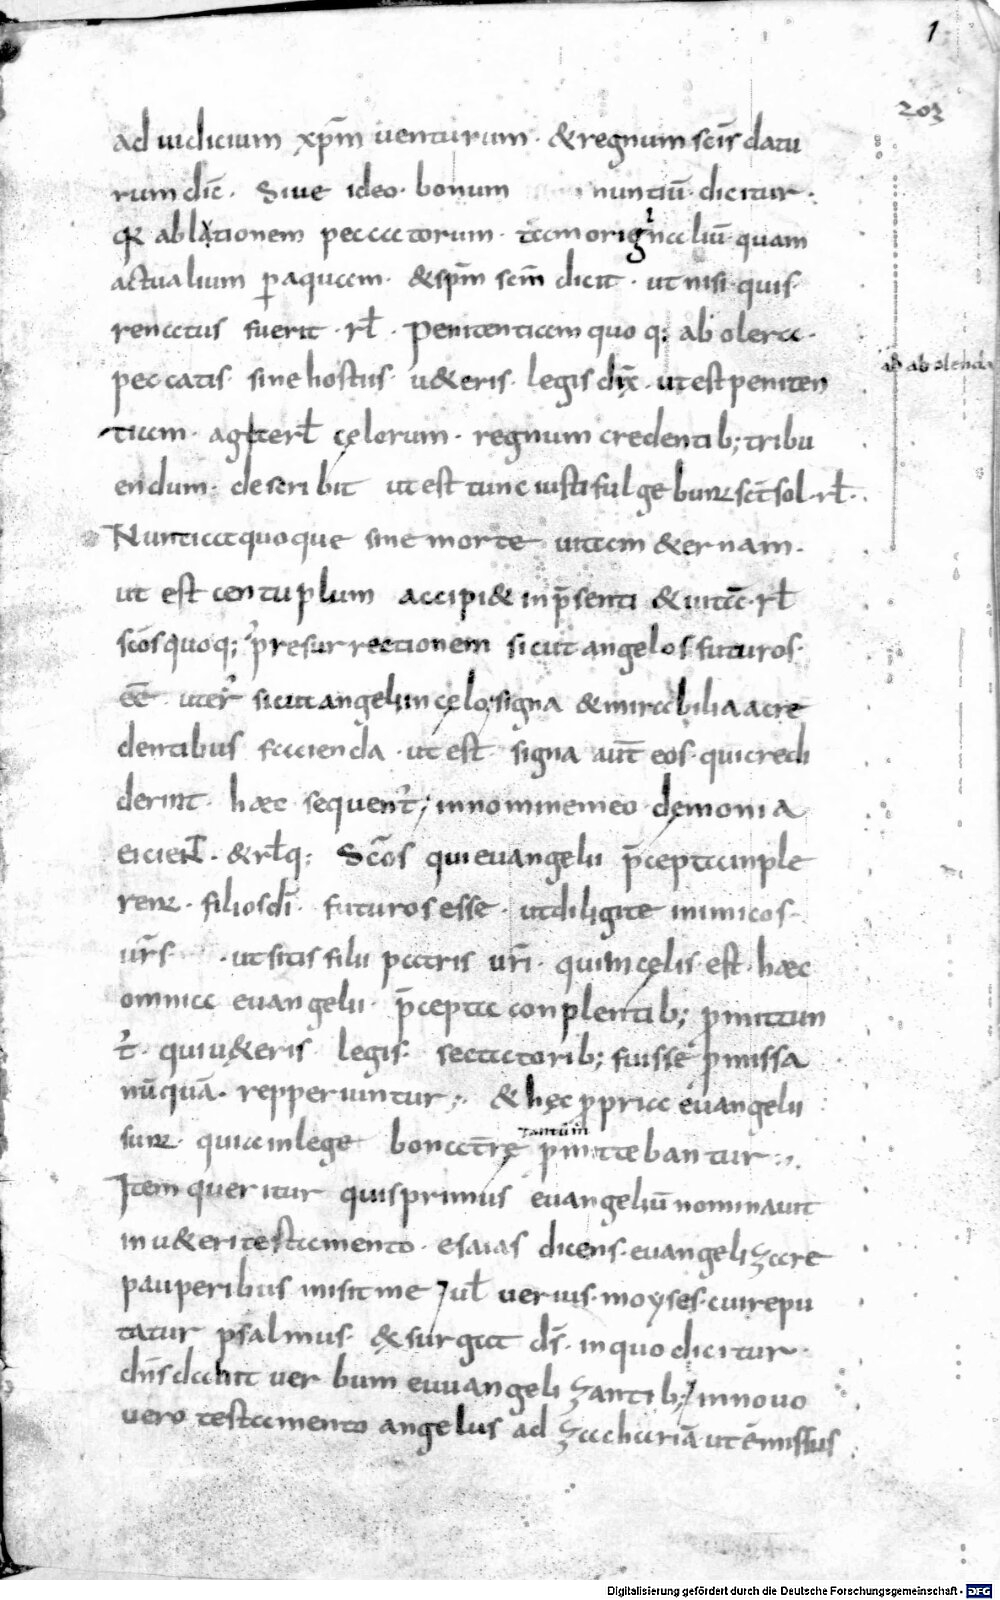 1
203
ad iudicium xp̄m uenturum · & regnum sc̄is datu
rum dic̄ · Siue ideo · bonum nuntiū · dicitur ·
qr ablationem peccatorum · tam originaliū · quam
actualium p aquam · & sp̄m sc̄m dicit · ut nisi · quis ·
renatus fuerit · rł · Penitentiam quoq; ab olera ·
ad abolenda
peccatis · sine hostiis · u&eris · legis dix̄ · ut est peniten
tiam · agite rł cęlorum · regnum credentib; tribu
endum · describit ut est tunc iusti fulgebunt sc̄t sol · rł ·
Nuntiat quoque sine morte uitam &ernam ·
ut est centuplum accipi& in p̄senti & uitā · rł
sc̄os quoq; p resurrectionem sicut angelos futuros ·
eē ut er̄ sicut angeli in cęlo; signa & mirabilia a cre
dentibus facienda · ut est signa aut̄ eos · qui credi
derint · hæc sequent̄; in nomine meo demonia
eicient · & rłq; Sc̄os qui euangelii p̄cepta inple
rent · filios dī · futuros esse · ut diligite inimicos ·
ur̄s · ut sitis filii patris ur̄i · qui in cęlis · est · hæc
omnia euangelii · p̄cepta conplentib; pmittun
t̄ · qui u&eris legis · sectatorib; fuisse pmissa
nūquā · repperiuntur; & hęc ppria euangelii
sunt · quia in lege bona t̄rę tantum pmittebantur ;,
Item queritur quis primus euangeliū nominauit
in u&eri testamento · esaias dicens · euangelizare
pauperibus misit me / uł uerius · moyses · cui repu
tatur psalmus · & surgat ds̄ · in quo dicitur ·
dn̄s dabit uerbum euuangelizantib; / in nouo
uero testamento angelus ad zachariā ut ē missus
Digitalisierung gefördert durch die Deutsche Forschungsgemeinschaft - DFG